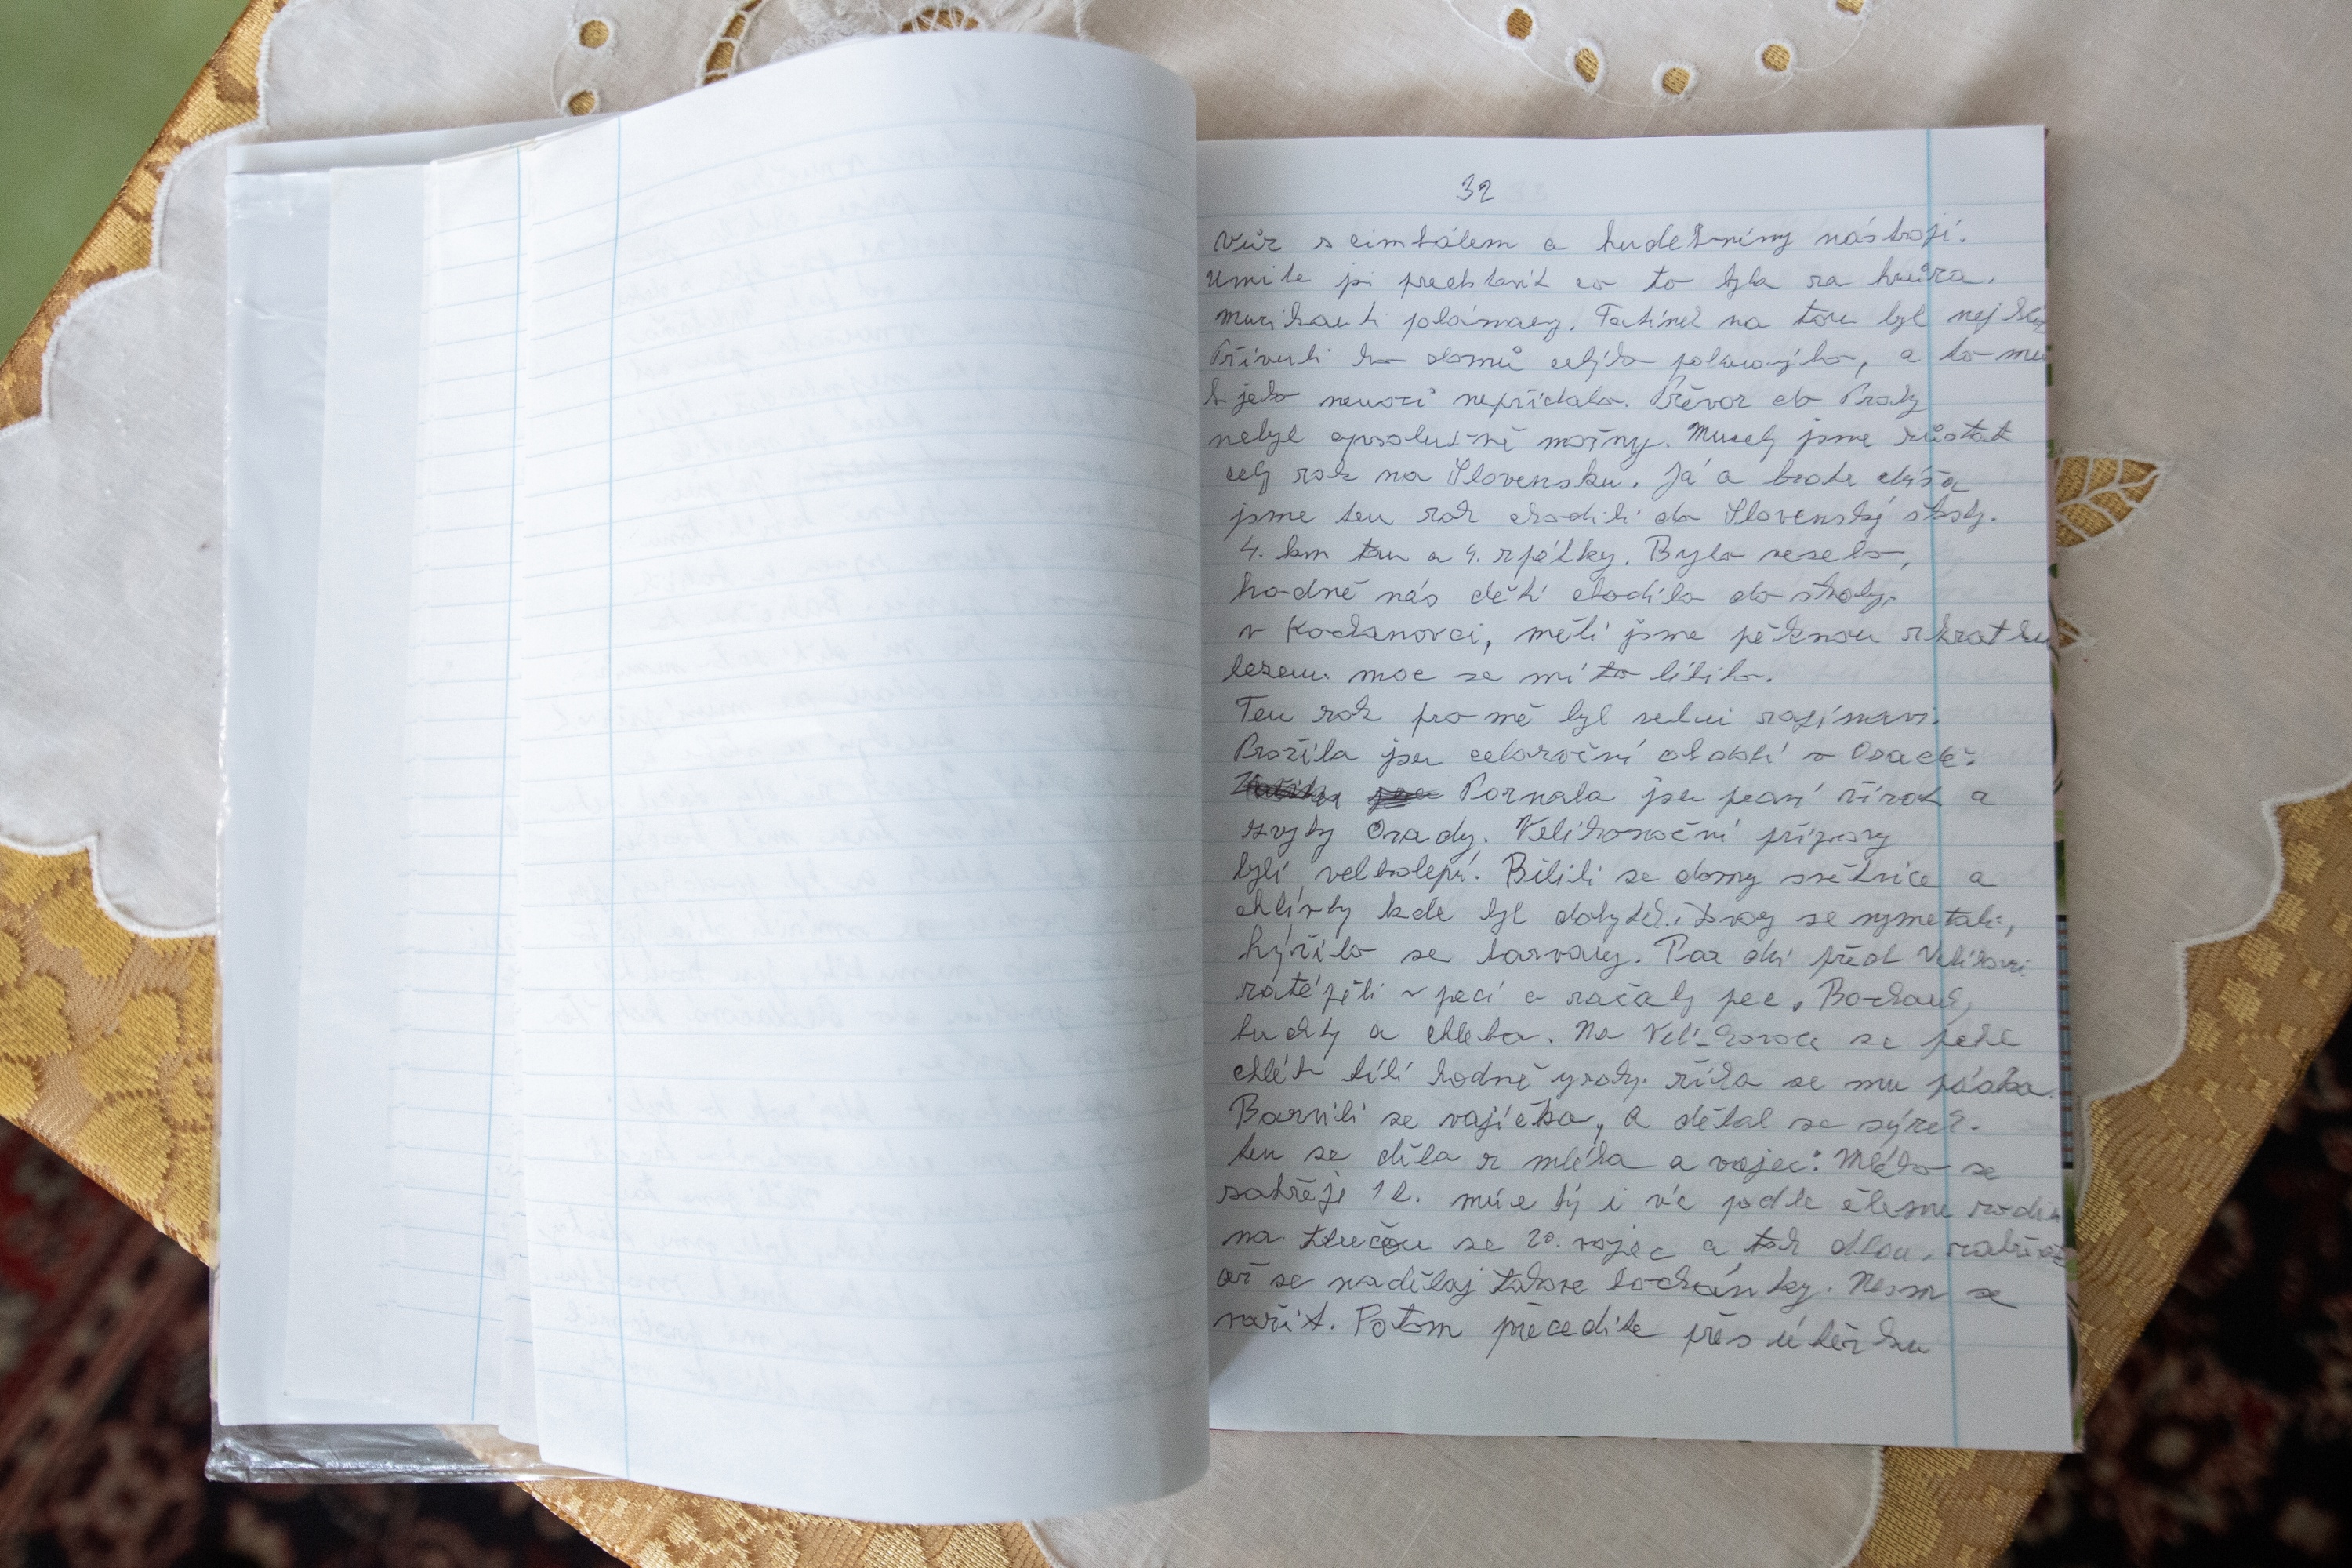 32
vůz s cimbálem a hudebními nástroji.
Umíte si predstavit co to byla za hrůza.
Muzikanti polámaný. Tatínek na tom byl nej
Přivezli ho domů celýho polámanýho, a to mu
k jeho nemoci nepřidalo. Převoz do Prahy
nebyl apsolutně možný. Musely jsme zůstat
celý rok na Slovensku. Já a bratr
jsme ten rok chodili do Slovenský školy.
4. km tam a 4. zpátky. Bylo veselo,
hodně nás dětí chodilo do školy,
v Kochanovci, měli jsme pěknou zkratku
lesem. moc se mi to líbilo.
Ten rok pro mě byl velmi zajímavi.
Prožila jsem celoroční období v Osadě.
Poznala jsem pravi život a
zvyky Osady. Velikonoční přípravy
byli velkolepí. Bílili se domy světnice a
chlívky kde byl dobytek. Dvory se vymetali,
hýřilo se barvamy. Par dní před Velikonoci
zatépěli v peci a začaly pec. Bochank,
buchty a chleba. Na Velikonoce se pekl
chléb bílí hodně žíka se mu páska.
Barvili se vajíčka, a dělal se sýrek.
ten se děla z mléka a vajec: Mléko se
zahřeje 1 l. múže bý i víc podle členu rodin
na tlučou se 20. vajec a tak dlou. zahřívá
až se nadělaj takove bochánky. Nesm se
vařit. Potom přecedíte přes útěrku